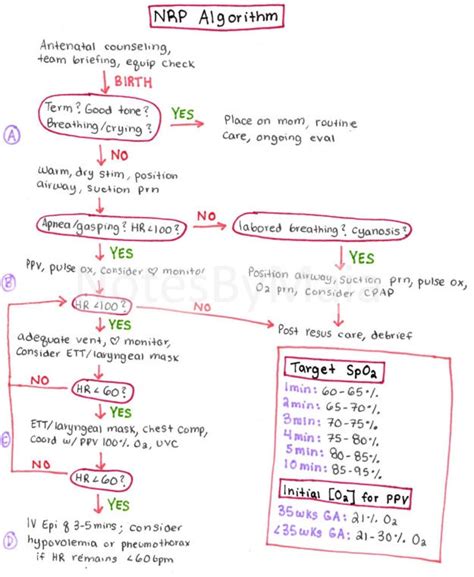 NRP Algorithm
Antenatal counseling,
team briefing, equip check
BIRTH
Term? Good tone?
Breathing/crying?
YES
Place on mom, routine
care, ongoing eval
A
NO
Warm, dry stim, position
airway, suction prn
Apnea/gasping? HR<100?
NO
labored breathing? cyanosis?
YES
YES
PPV, pulse ox, consider ♡ monitor
Position airway, suction prn, pulse ox,
O2 prn, consider CPAP
B
NotesBy
HR<100?
NO
YES
Post resus care, debrief
adequate vent, ♡ monitor,
Consider ETT/laryngeal mask
NO
HR<60?
YES
ETT/laryngeal mask, chest comp,
Coord w/ PPV 100% O2, UVC
C
NO
HR<60?
YES
D
IV Epi q 3-5mins; consider
hypovolemia or pneumothorax
if HR remains <60bpm
Target SpO2
1min: 60-65%
2min: 65-70%
3min: 70-75%
4min: 75-80%
5min: 80-85%
10min: 85-95%
Initial [O2] for PPV
35wks GA: 21% O2
<35wks GA: 21-30% O2